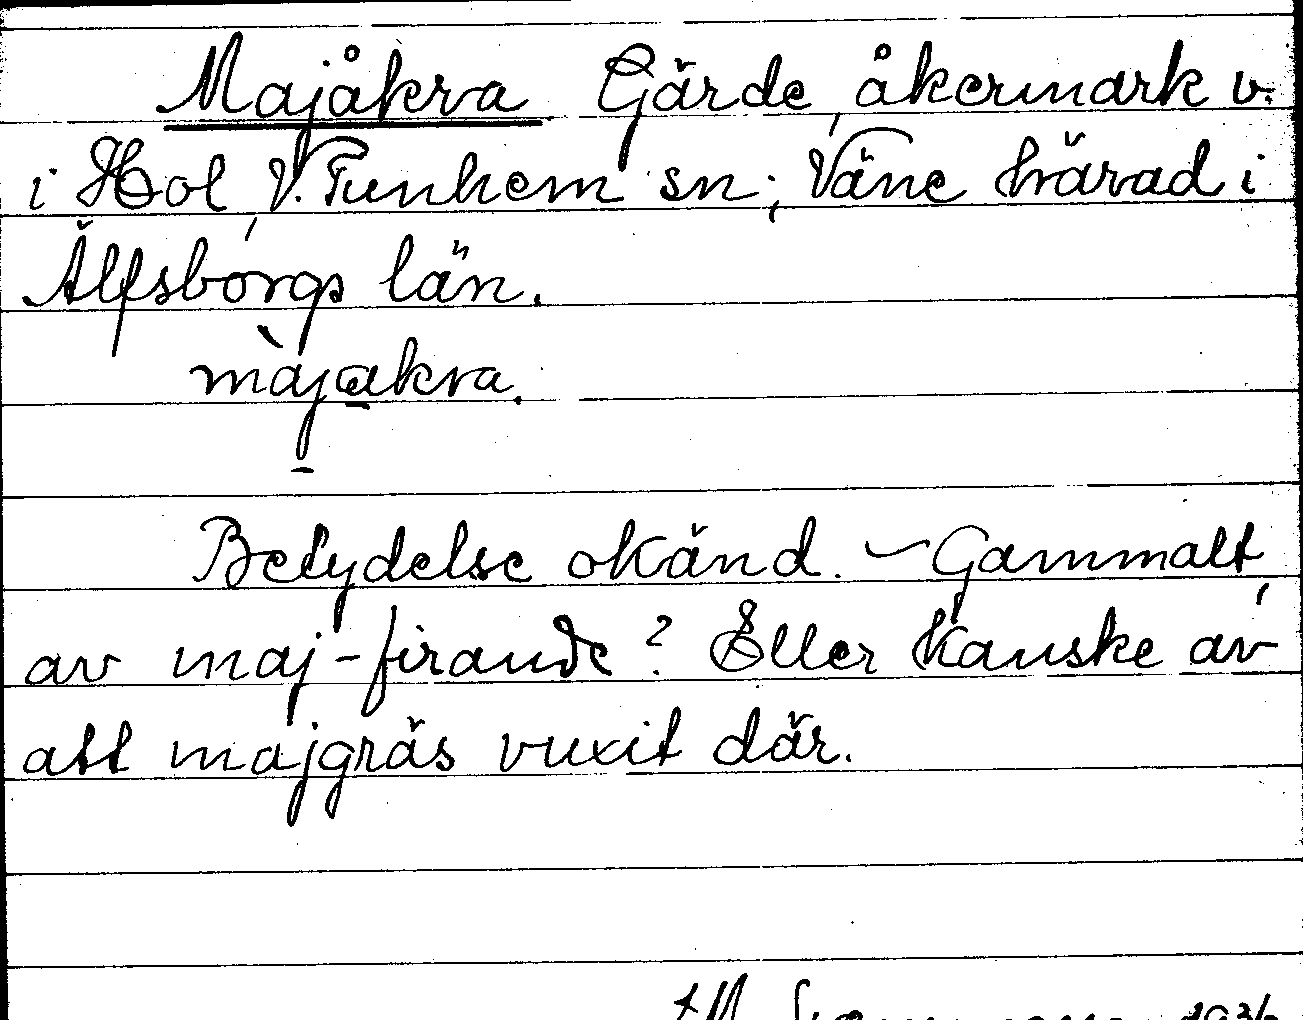 Majåkra Gärde, åkermark v.
i Hol, V. Tunhem sn; Väne härad i
Älfsborgs län.
màjakra.
Betydelse okänd. – Gammalt,
av maj-firande? Eller kanske av
att majgräs vuxit där.